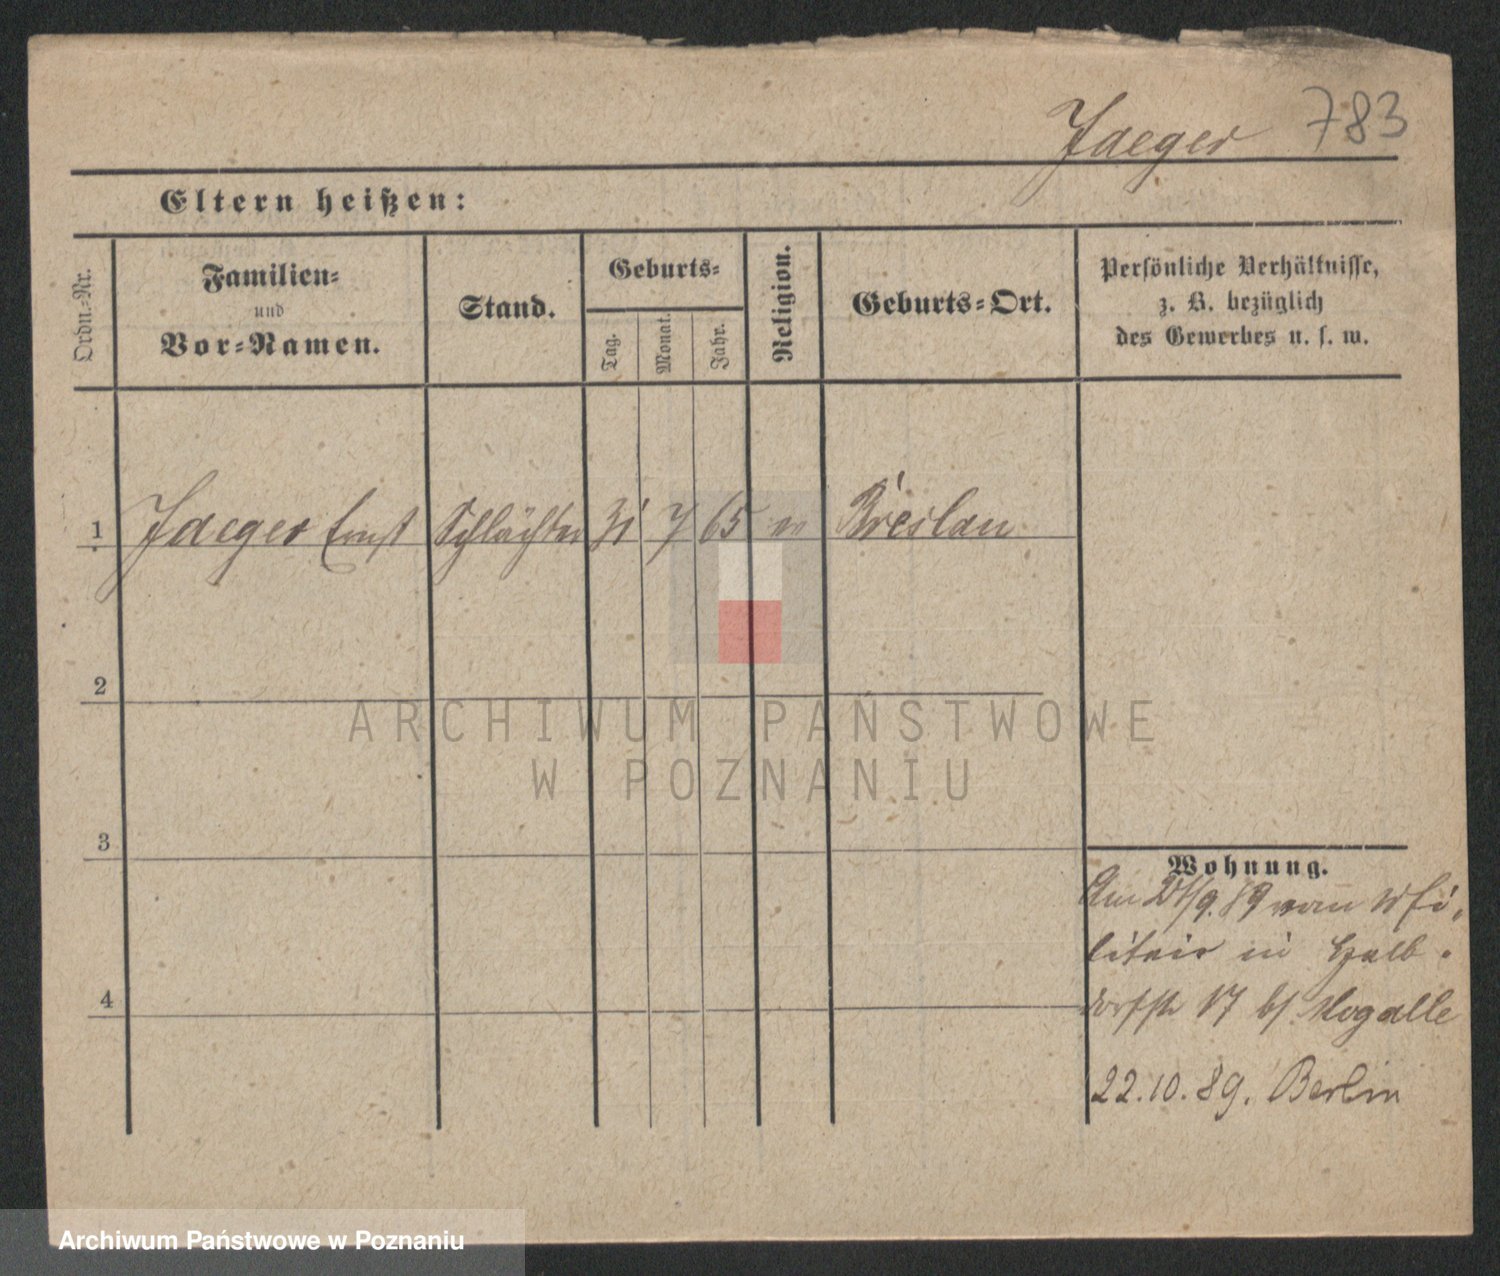 Jaeger 783
Eltern heißen:
Ordn.-Nr.
Familien-
und
Vor-Namen.
Stand.
Geburts-
Tag.
Monat.
Jahr.
Religion.
Geburts-Ort.
Persönliche Verhältnisse,
z. B. bezüglich
des Gewerbes u. s. w.
1 Jaeger Ernst Schlächter 31 7 65 Breslau
2
ARCHIWUM PAŃSTWOWE
W POZNANIU
3
Wohnung.
Am 9.89 vom Mi-
litair in Halb-
dorfstr 17 b/ Mogalle
4
22.10.89. Berlin
Archiwum Państwowe w Poznaniu